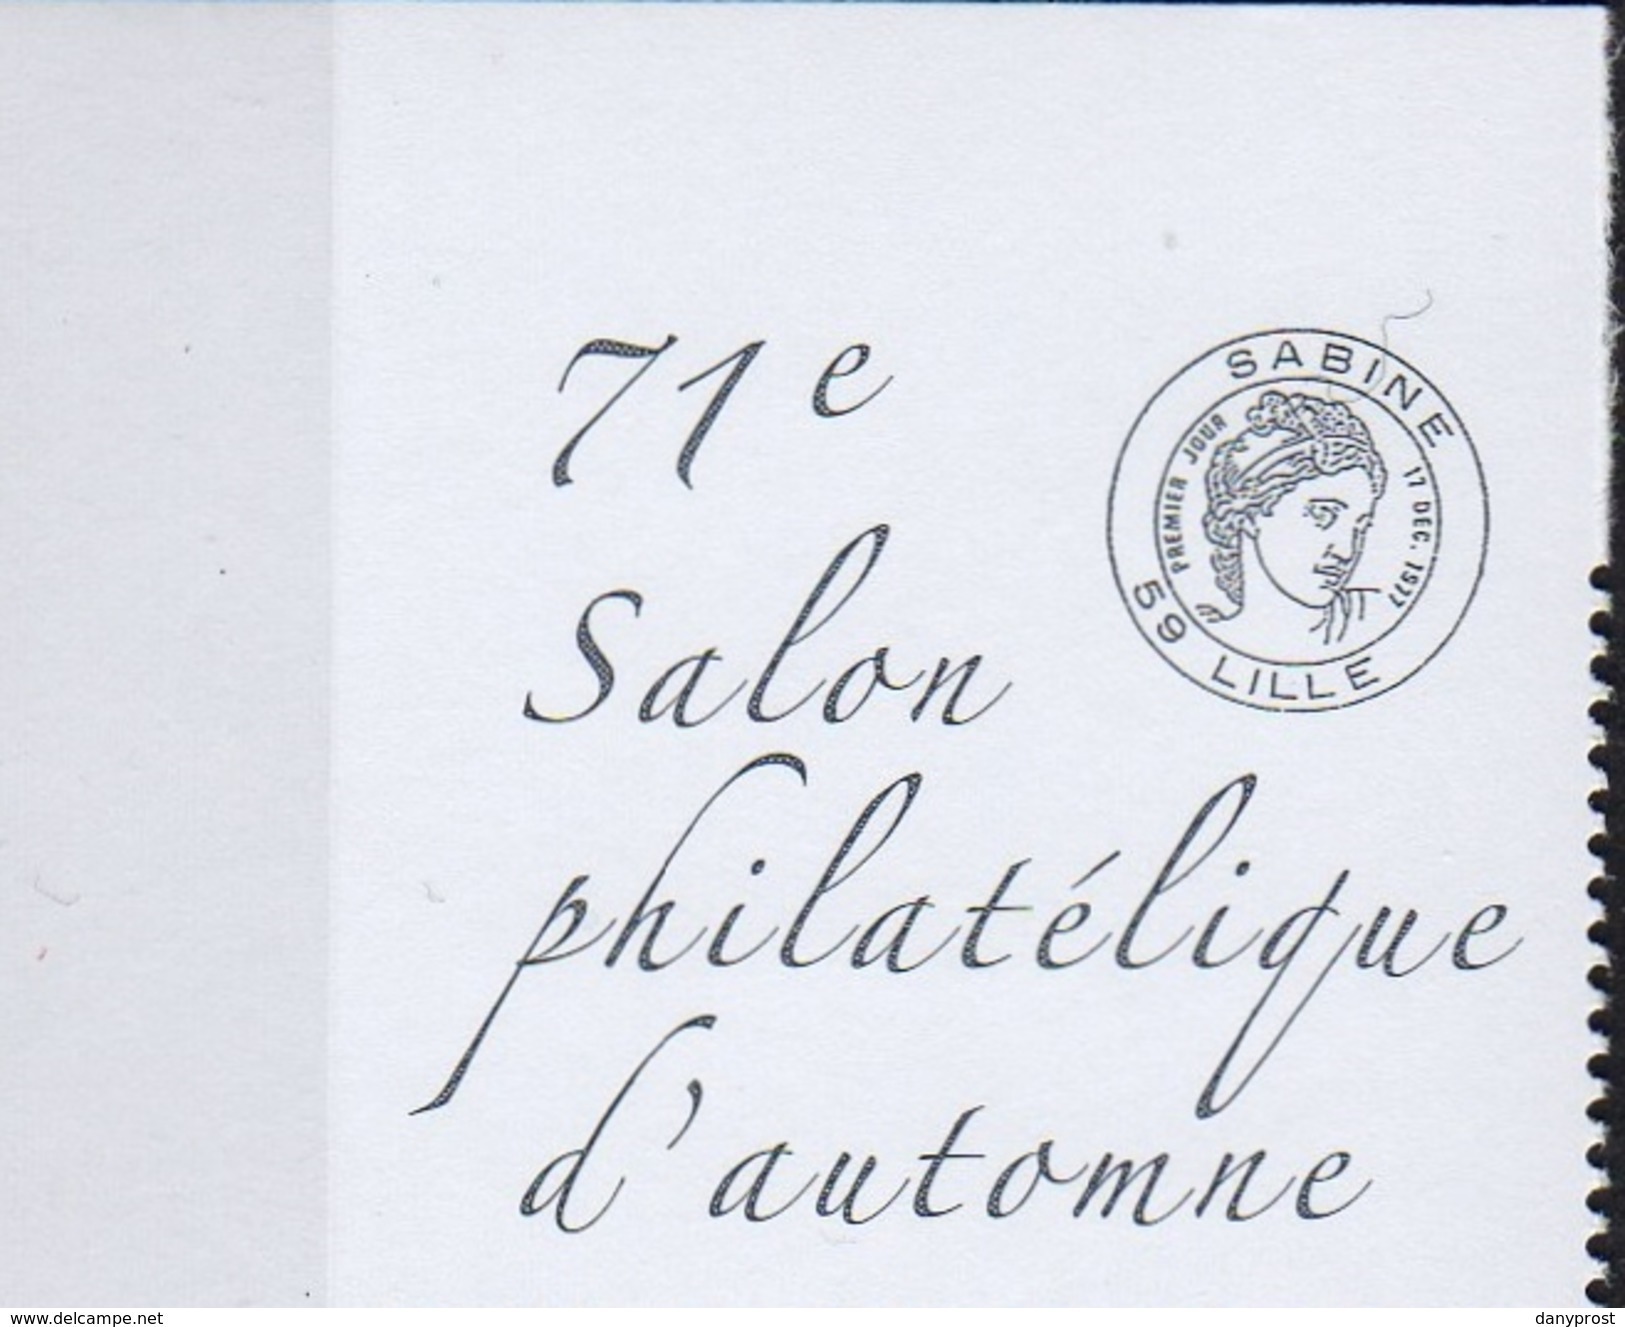 71e
Salon
philatélique
d'automne
SABINE
PREMIER JOUR
17 DEC. 1977
59 LILLE
www.delcampe.net
danyprost